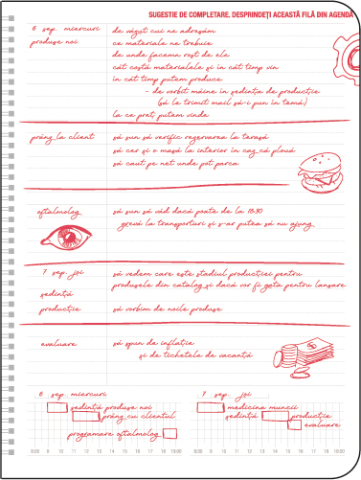 SUGESTIE DE COMPLETARE. DESPRINDEȚI ACEASTĂ FILĂ DIN AGENDĂ
6 sep. miercuri
produse noi
de văzut cui ne adresăm
ce materiale ne trebuie
de unde facem rost de ele
cât costă materialele și în cât timp vin
în cât timp putem produce
- de vorbit mâine în ședința de producție
(să le trimit mail să-i pun în temă)
la ce preț putem vinde
prânz la client
să sun să verific rezervarea la terasă
să cer și o masă la interior în caz că plouă
să caut pe net unde pot parca
oftalmolog
să sun să văd dacă poate de la 18:30
grevă la transporturi și s-ar putea să nu ajung
7 sep. joi
ședință
producție
să vedem care este stadiul producției pentru
produsele din catalog și dacă vor fi gata pentru lansare
să vorbim de noile produse
evaluare
să spun de inflație
și de tichetele de vacanță
6 sep. miercuri
ședință produse noi
prânz cu clientul
programare oftalmolog
7 sep. joi
medicina muncii
ședință producție
evaluare